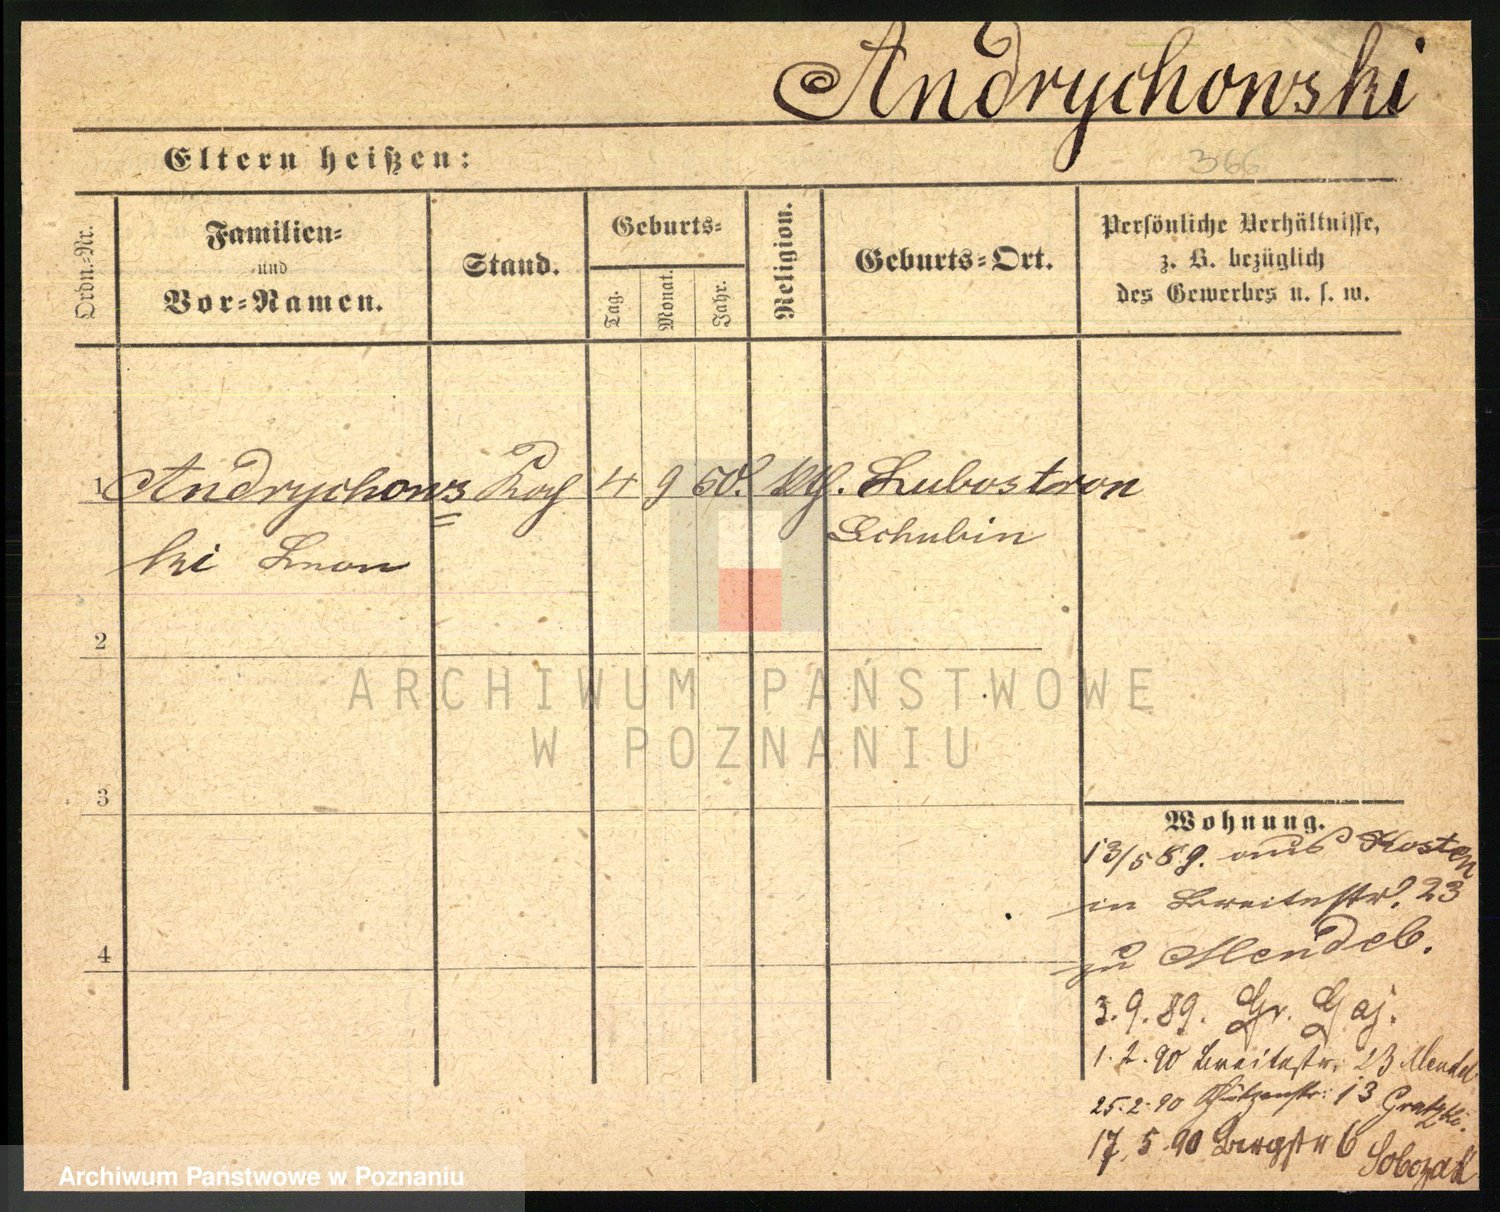 Andrychowski
Eltern heißen:
366
Ordn.-Nr.
Familien-
und
Vor-Namen.
Stand.
Geburts-
Tag.
Monat.
Jahr.
Religion.
Geburts-Ort.
Persönliche Verhältnisse,
z. B. bezüglich
des Gewerbes u. s. w.
1 Andrychows Koch 4 9 60. kth. Lubostron
Schubin
ki
2
ARCHIWUM PAŃSTWOWE
W POZNANIU
3
Wohnung.
13/5 89. aus Kosten
in Breitestr. 23
zu Mendel.
4
3.9.89. Gr. Gaj.
1.2.90 Breitestr. 23 Mendel
25.2.90 Schützenstr. 13
17.5.90 Bergstr 6 Sobczak
Archiwum Państwowe w Poznaniu